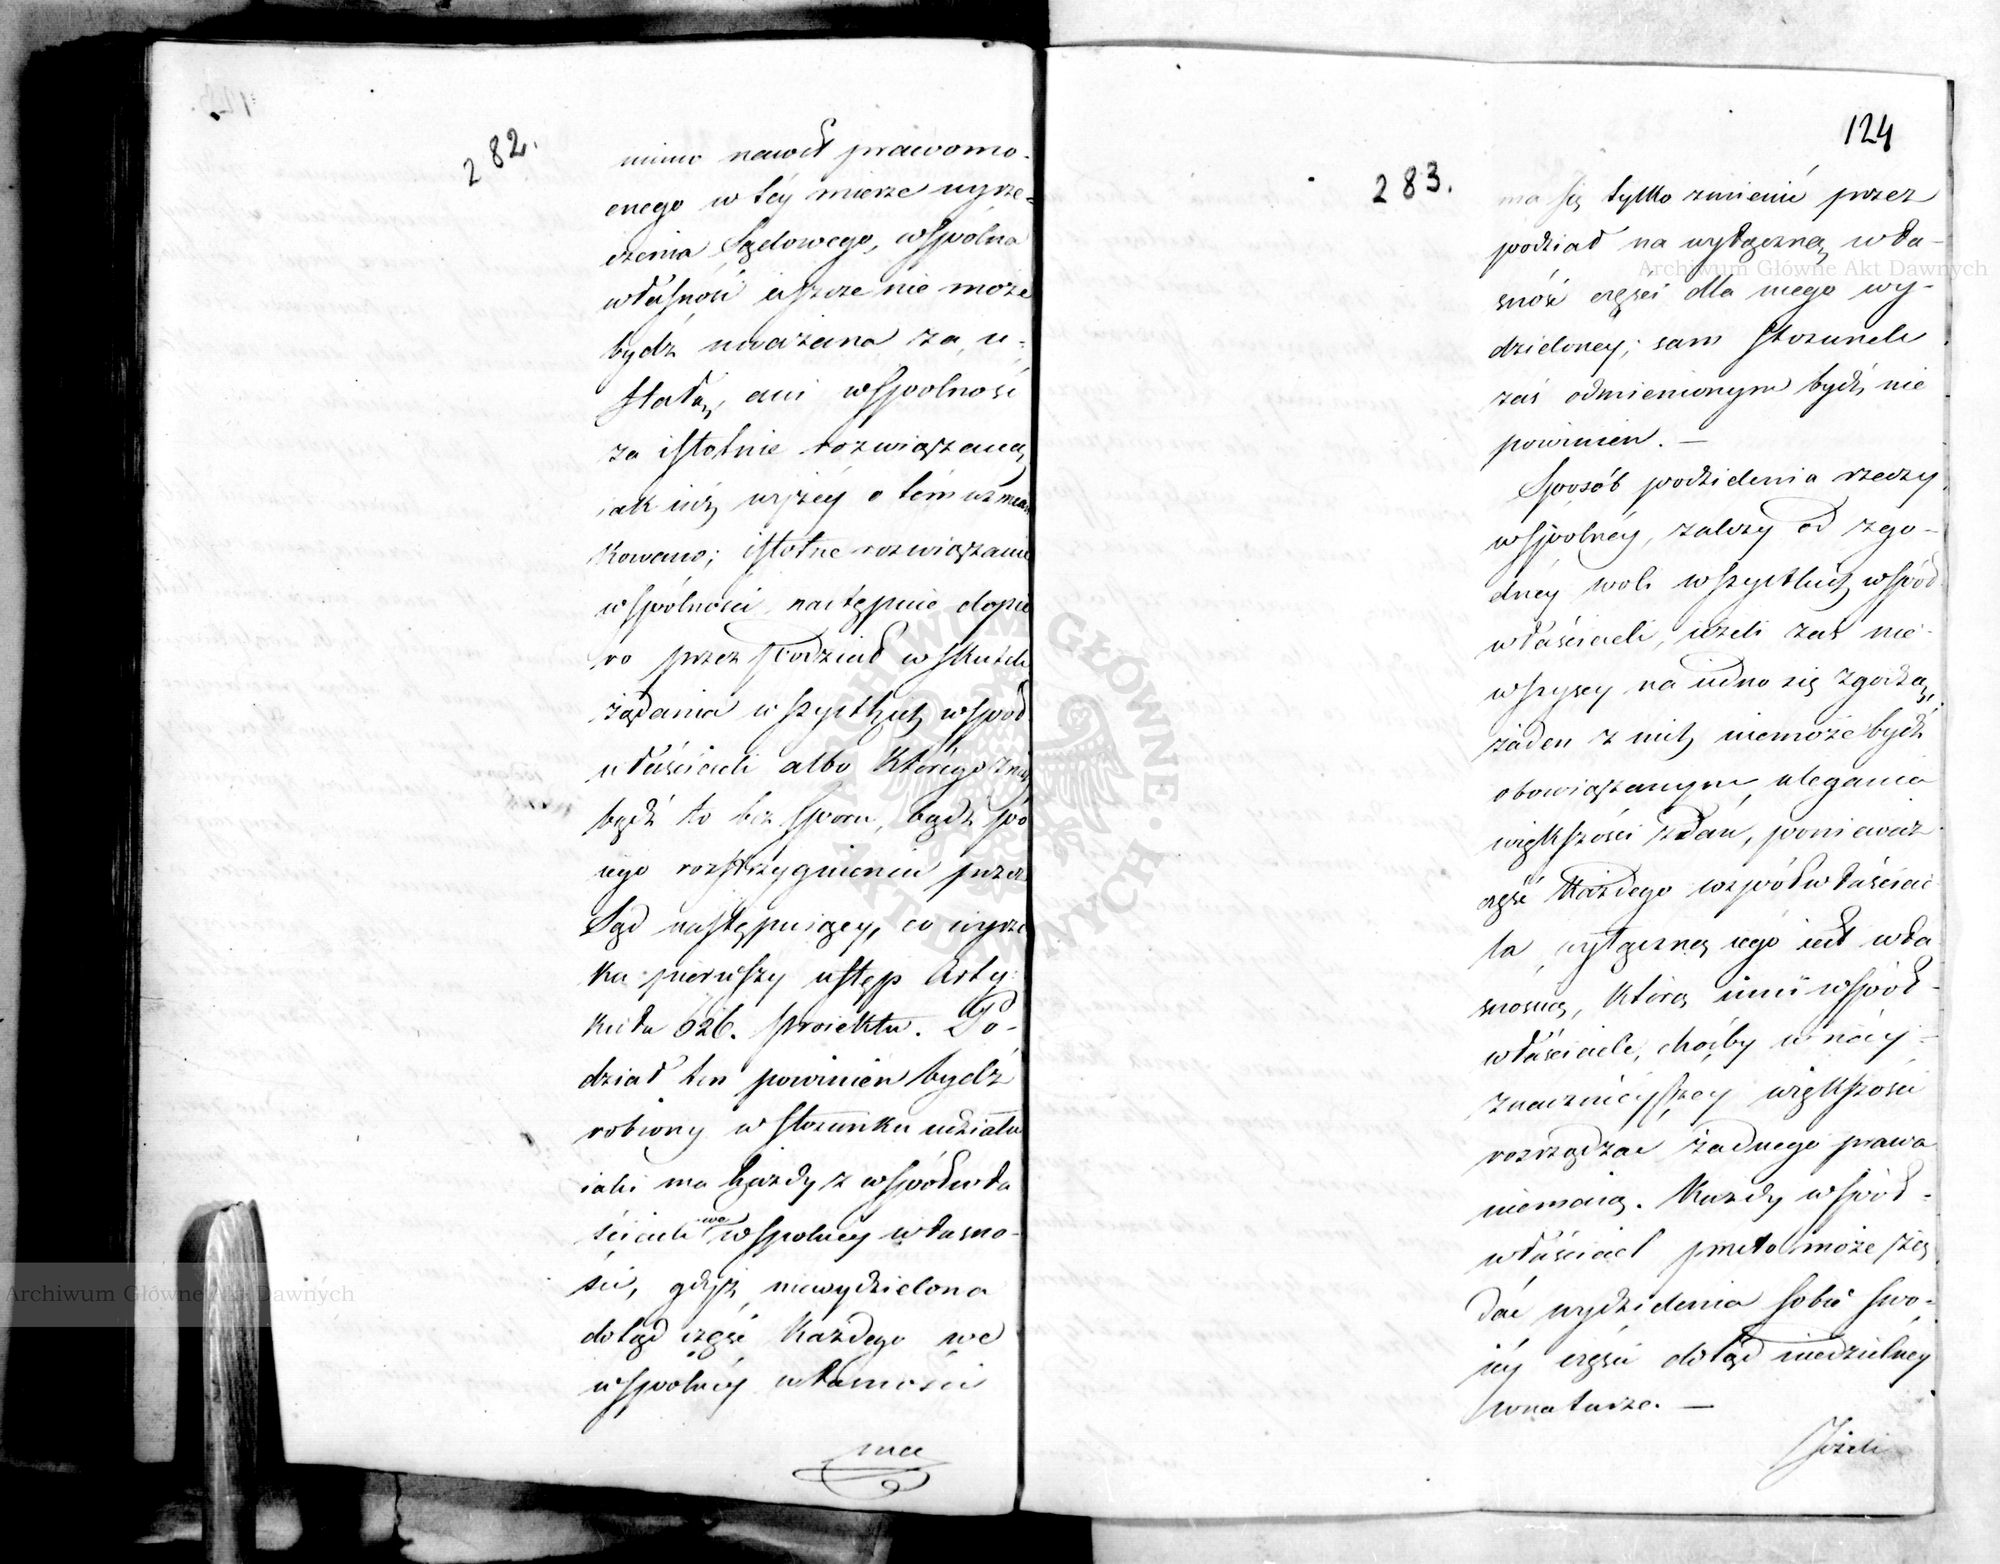 282.
mimo nawet prawomo-
cnego w téy mierze wyrze-
czenia Sądowego, wspólna
własność ieszcze nie może
bydź uważana za u-
stałą, ani wspólność
za istotnie rozwiązaną,
iak iuż wyżéy o tém wzmian
kowano; istotne rozwiązanie
wspólności następuie dopie
ro przez podział w skutek
żądania wszystkich wspól
właścicieli albo którego z nich
bądź to bez sporu, bądź po
iego rozstrzygnieniu przez
Sąd następuiący, co wyrze
ka pierwszy ustęp Arty-
kułu 826. proiektu. Po-
dział ten powinien bydź
robiony w stosunku udziału
iaki ma każdy z współwła
ścicieli we wspólney własno-
ści, gdyż niewydzielona
dotąd część każdego we
wspólnéy własności
ma
124
283.
ma się tylko zmienić przez
podział na wyłączną wła-
sność części dla niego wy-
dzieloney; sam stosunek
zaś odmienionym bydź nie
powinien. —
Sposób podzielenia rzeczy
wspólnéy, zależy od zgo-
dnéy woli wszystkich współ
właścicieli, ieżeli zaś nie-
wszyscy na iedno się zgodzą,
żaden z nich niemoże bydź
obowiązanym ulegania
większości zdań, ponieważ
część każdego współwłaścicie
la, wyłączną iego iest wła
snością, którą inni współ-
właściciele, choćby w náy-
znacznieyszey większości
rozrządzać żadnego prawa
niemaią. Każdy współ-
właściciel przeto może żą
dać wydzielenia sobie swo-
iéy części dotąd niedzielney
w naturze. —
Jeżeli
Archiwum Główne Akt Dawnych
Archiwum Główne Akt Dawnych
ARCHIWUM GŁÓWNE AKT DAWNYCH